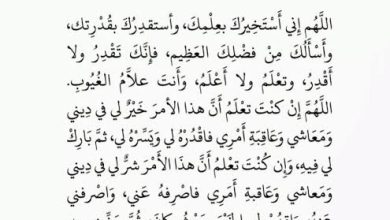 اللَّهُم إني أَسْتَخِيرُكَ بعِلْمِكَ، وأستقدِرُكَ بقُدْرَتِك،
وأَسْأَلُكَ مِنْ فضْلِكَ العَظِيم، فإنَّكَ تَقْدِرُ ولا
أَقْدِرُ، وتعْلَمُ ولا أَعْلَمُ، وَأَنتَ علاَّمُ الغُيُوبِ.
اللَّهُمَّ إنْ كُنْتَ تعْلَمُ أنَّ هذا الأمرَ خَيْرٌ لي في دِيني
وَمَعَاشي وَعَاقِبَةِ أَمْرِي فاقْدُرْهُ لي وَيَسِّرْهُ لي، ثمَّ بَارِكْ
لي فِيهِ، وَإن كُنْتَ تعْلمُ أَنَّ هذَا الأَمْرَ شرٌّ لي في دِيني
وَمَعاشي وَعَاقبةِ أَمَرِي فاصْرِفهُ عَني، وَاصْرفني